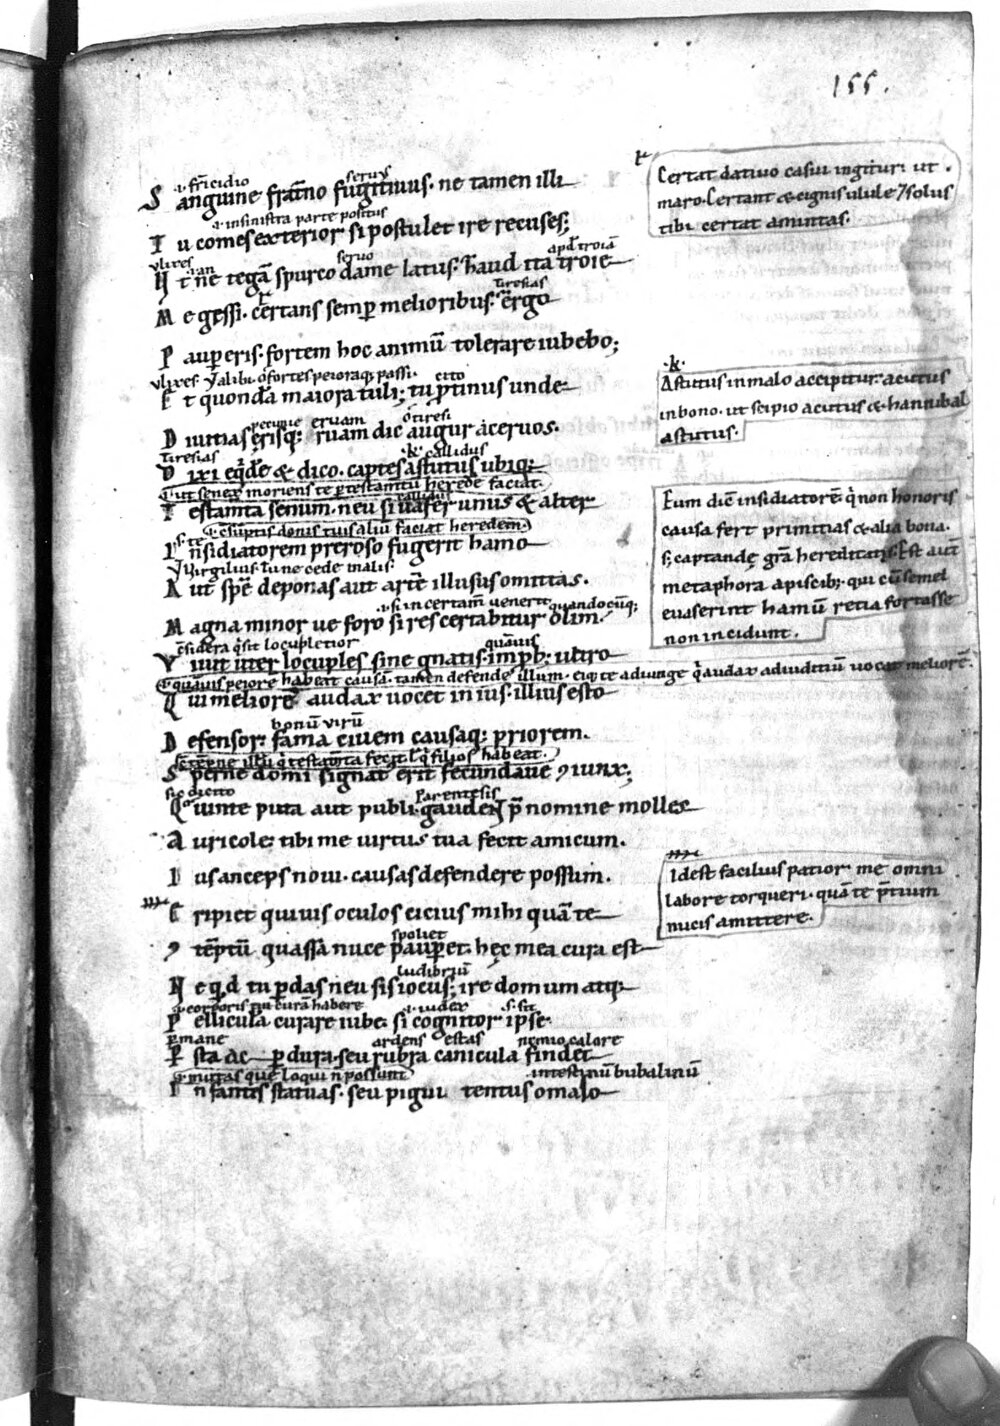 155.
.i. fr̄icidio seruus
Sanguine frat̄no fugitiuus. ne tamen illi
.i. insinistra parte positus
Tu comes exterior si postulet ire recuses;
ulixes an seruo apd̄ troiā
Vt ne tegā spurco dame latus. haud ita troie
tiresias
Me gessi. certans semp̄ melioribus. ergo
Pauperis. fortem hoc animū tolerare iubebo;
cito
Et quondā maiora tuli; tu p̄tinus unde
pecunie eruam o tiresi
Diuitias ęrisq; ruam dic augur aceruos.
tiresias callidus
Dixi eq̄dē & dico. captes astutus ubiq;
.i. ut senex moriens te p̄ testamtū heredē faciat.
callidus
Testamta senum. neu si uafer unus & alter
.i. efuptis donis tuis aliū faciat heredem.
Insidiatorem preroso fugerit hamo
Aut spē deponas aut artē illusus omittas.
.i. si in certam̄ uenerit quandocūq;
Magna minor ue foro si res certabitur olim.
c̄sidera q̄ sit locupletior quāuis
Viuit uter locuples sine gnatis. imp̄b; ultro
.i. quāuis peiorē habeat causā. tamen defende illum. eiq; te adiunge q̄ audax adiuditiū uocat meliorē.
Qui meliorē audax uocet in ius. illius esto
bonū uirū
Defensor: fama ciuem causaq; priorem.
Sperne domi si gnat̄ erit fecundaue ɔiunx;
sic dicito Parentesis
Quinte puta aut publi. gaudent̄ p̄nomine molles
Auricole: tibi me uirtus tua fecit amicum.
Ius anceps noui. causas defendere possum.
Eripiet quiuis oculos cicius mihi quā te
spoliet
ɔtēptū quassā nuce pauperet. hęc mea cura est
ludibriū
Ne q̄d tu p̄das neu sis iocus; ire domum atq;
.i. iudex .s. sit
Pelliculā curare iube: si cognitor ipse.
p̄mane ardens estas nimio calore
P̄sta ac p̄dura. seu rubra canicula findet
.i. mutas que loqui n̄ possunt intestinū bubalinū
Infantis statuas. seu pigui tentus omalo
Certat datiuo casui iungitur: ut.
maro. Certant & cignis ulule ⁊ solus
tibi certat amintas.
Astutus in malo accipitur: acutus
in bono. ut scipio acutus & hannibal
astutus.
Eum dic̄ insidiatorē q̄ non honoris
causa fert primitias & alia bona.
s; captandę grā hereditatis. Est aut̄
metaphora a piscib; qui cū semel
euaserint hamū retia fortasse
non incidunt.
Idest facilius patior me omni
labore torqueri. quā te p̄tium
nucis amittere.